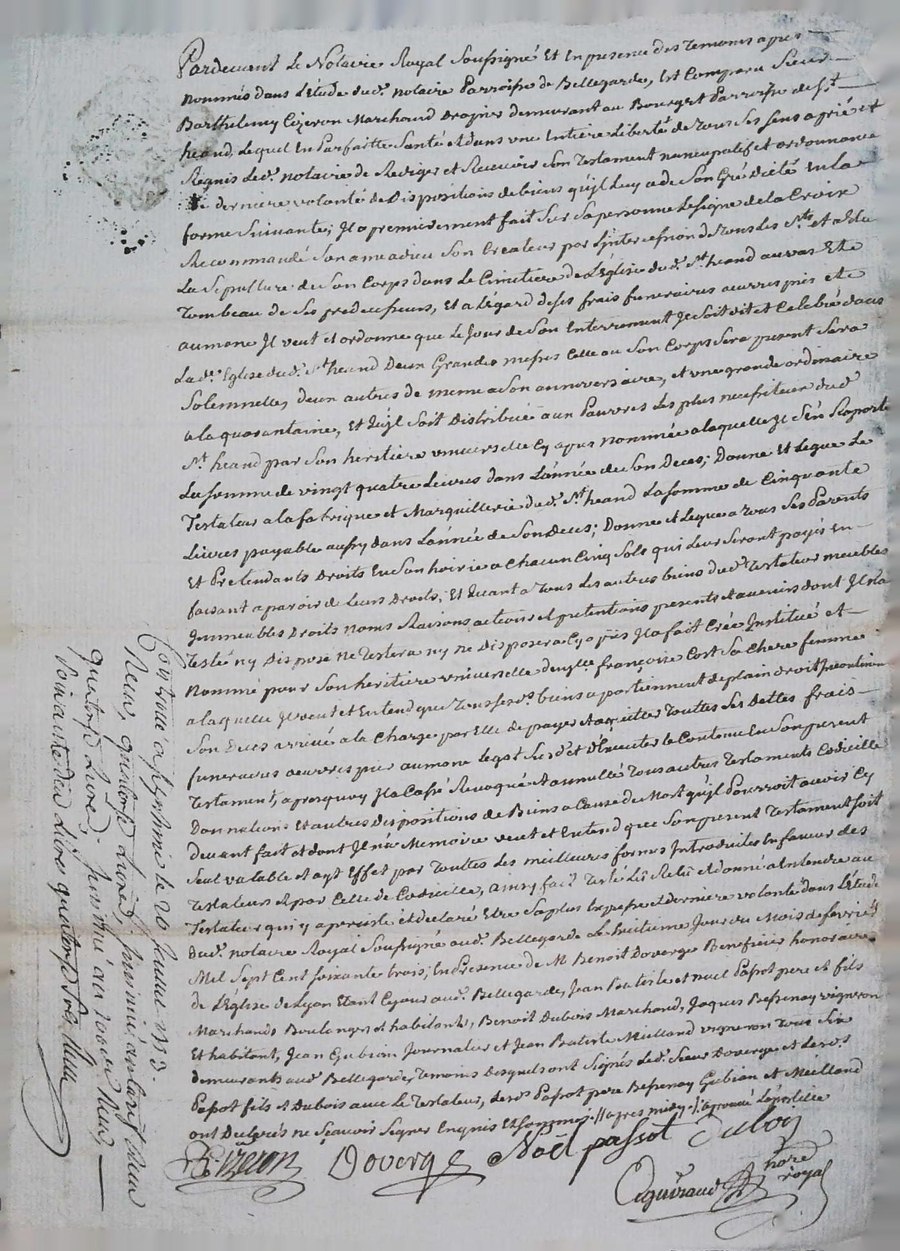 Pardevant Le Notaire Royal Soussigné Et En presence des Temoins apres
nommés dans l'étude dud. notaire Parroisse de Bellegarde, Est Comparu Sieur
Barthelemy Cizeron Marchand Drapier demeurant au Bourg et Parroisse de St.
heand, Lequel En Parfaitte Santé et dans une Entiere Liberté de Tous Ses Sens a prié et
Requis led. notaire de Rediger et Recevoir Son Testament nuncupatif et ordonnance
de derniere volonté de Dispositions de biens qu'jl luy a de Son Gré Dicté En la
forme Suivante; Jl a premierement fait Sur Sa personne Le Signe de la Croix
Recommandé Son ame a dieu Son Createur par L'intercession de Tous Les Sts. et a Elu
La Sepulture de Son Corps dans Le Cimitiere de L'Eglise dud. St. heand au vas Et
Tombeau de Ses predecesseurs, Et a L'egard de Ses frais funeraires œuvres pies et
aumone Jl veut et ordonne que Le Jour de Son Enterrement Jl Soit dit et Celebré dans
Lad. Eglise dud. St. heand Deux Grandes messes Celle ou Son Corps Sera present Sera
Solemnelle, deux autres de meme a Son anniversaire, et une grande ordinaire
a la quarantaine, Et qu'jl Soit Distribué aux Pauvres Les plus necessiteux dud.
St. heand par Son heritiere universelle Cy apres nommée a laquelle Jl S'en Raporte
La Somme de vingt quatre Livres dans L'année de Son Deces; Donne Et Legue Le
Testateur a la fabrique et Marguillerie dud. St. heand La Somme de Cinquante
Livres payable aussy dans L'année de Son Deces; Donne et Legue a Tous Ses Parents
Et Pretendants Droits En Son hoirie a Chacun Cinq Sols qui leur Seront payés En
faisant aparoir de Leurs Droits; Et Quant a Tous Les autres biens dud. Testateur meubles
Jmmeubles Droits noms Raisons actions et pretentions presents et avenirs dont Jl n'a
Testé ny Disposé ne Testera ny ne Disposera Cy apres Jl a fait Créé Jnstitué et
Nommé pour Son heritiere universelle françoise Cort Sa Chere femme
a laquelle Jl veut et Entend que Tous Sesd. biens apartiennent de plain droit Jncontinent
Son Deces arrivé a la Charge par Elle de payer et aquitter Toutes Ses Dettes frais
funeraires œuvres pies aumone legat Susd. et D'Executer le Contenu En Son present
Testament, apres quoy Jl a Cassé Revoqué et annullé Tous autres Testaments Codicille
Donnations Et autres Dispositions de Biens a Cause de Mort qu'jl Pourroit avoir Cy
Devant fait et dont Jl n'a Memoire veut et Entend que Son present Testament Soit
Seul valable et ayt Effet par Toutes les meilleures formes Introduites En faveur des
Testateurs et par Celle de Codicille, ainsy fait Testé Lû Relû et donné a Entendre au
Testateur qui y a persisté et declaré Etre Sa plus Expresse et Derniere volonté dans L'étude
dud. notaire Royal Soussigné aud. Bellegarde Le huitieme Jour du Mois de fevrier
Mil Sept Cent Soixante trois; En Presence de M. Benoît Doverge Beneficier honoraire
de L'Eglise de Lyon Etant Ce jour aud. Bellegarde, Jean Baptiste et noel Passot pere et fils
Marchands Boulangers et habitants, Benoît Dubois Marchand, Jaques Bessenay vigneron
Et habitant, Jean Gubian Journalier et Jean Batiste Meilland vigneron Tous Six
demeurants aud. Bellegarde, Temoins Desquels ont Signés led. Sieur Doverge et lesd.
Passot fils et Dubois avec le Testateur, Lesd. Passot pere Bessenay Gubian et Meilland
ont Declarés ne Scavoir Signer Enquis Et Sommés //apres midy./. approuvé
Cizeron Doverge Noël passot Dubois
nore
royal
Controllé a St.
Reçu quatorze Livres,
quatorze Livres,
Soixante dix Livres quatorze Sols